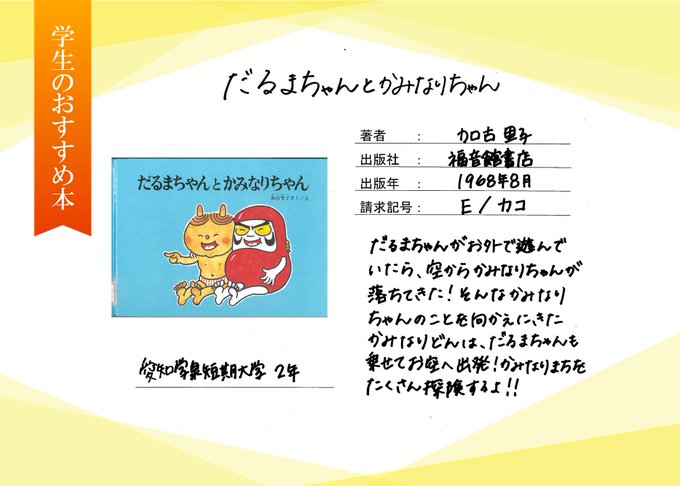 学生のおすすめ本
だるまちゃんとかみなりちゃん
著者 : 加古里子
出版社 : 福音館書店
出版年 : 1968年8月
請求記号 : E/カコ
だるまちゃんとかみなりちゃん
加古里子さく/え
だるまちゃんがお外で遊んで
いたら、空からかみなりちゃんが
落ちてきた!そんなかみなり
ちゃんのことを向かえにきた
かみなりどんは、だるまちゃんも
乗せてお空へ出発!かみなりまちを
たくさん探険するよ!!
愛知学泉短期大学 2年